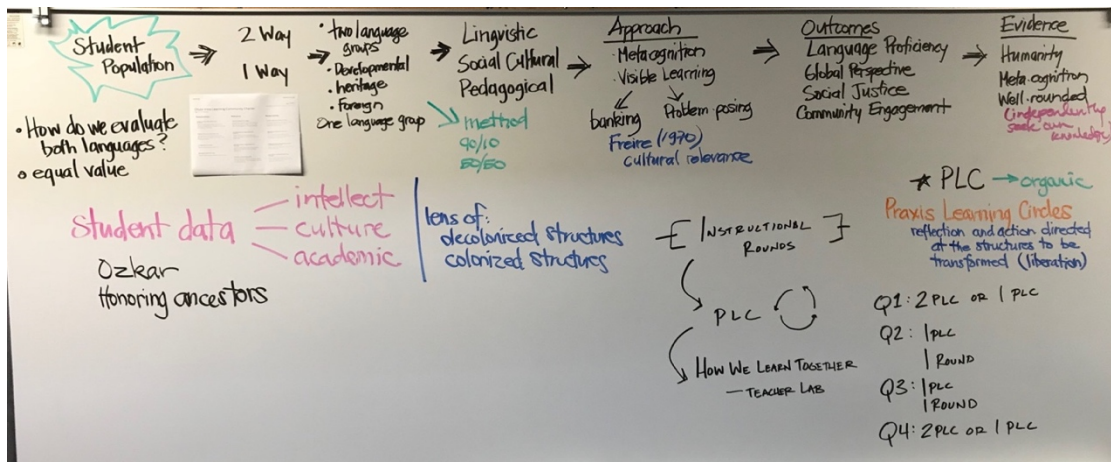 Student
Population
2 Way
1 Way
• two language
groups
• Developmental
• heritage
• foreign
One language group
Linguistic
Social Cultural
Pedagogical
method
90/10
50/50
Approach
• Metacognition
• Visible Learning
banking
Problem-posing
Freire (1970)
cultural relevance
Outcomes
Language Proficiency
Global Perspective
Social Justice
Community Engagement
Evidence
Humanity
Meta.cognition
Well-rounded
(independently
seek own
knowledge)
• How do we evaluate
both languages?
• equal value
Student data
intellect
culture
academic
Ozkar
Honoring ancestors
lens of:
decolonized structures
colonized structures
INSTRUCTIONAL
ROUNDS
PLC
HOW WE LEARN TOGETHER
— TEACHER LAB
★ PLC → organic
Praxis Learning Circles
reflection and action directed
at the structures to be
transformed (liberation)
Q1: 2 PLC OR 1 PLC
Q2: 1 PLC
1 ROUND
Q3: 1 PLC
1 ROUND
Q4: 2 PLC OR 1 PLC